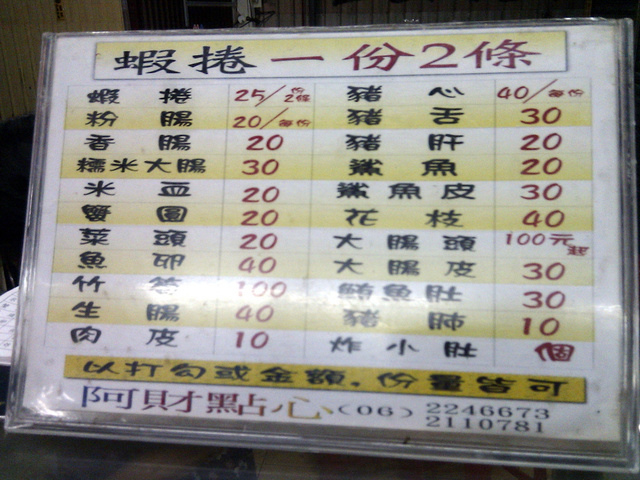 蝦捲一份2條
蝦捲 25/份2條 豬心 40/每份
粉腸 20/每份 豬舌 30
香腸 20 豬肝 20
糯米大腸 30 鯊魚 20
米血 20 鯊魚皮 30
蟹圓 20 花枝 40
菜頭 20 大腸頭 100元起
魚卵 40 大腸皮 30
竹筍 100 鮪魚肚 30
生腸 40 豬肺 10
肉皮 10 炸小肚 個
以打勾或金額,份量皆可
阿財點心(06) 2246673
2110781